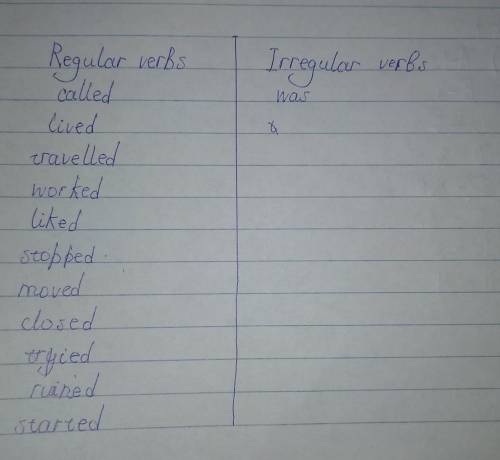 Regular verbs Irregular verbs
called was
lived
travelled
worked
liked
stopped
moved
closed
tryied
ruined
started